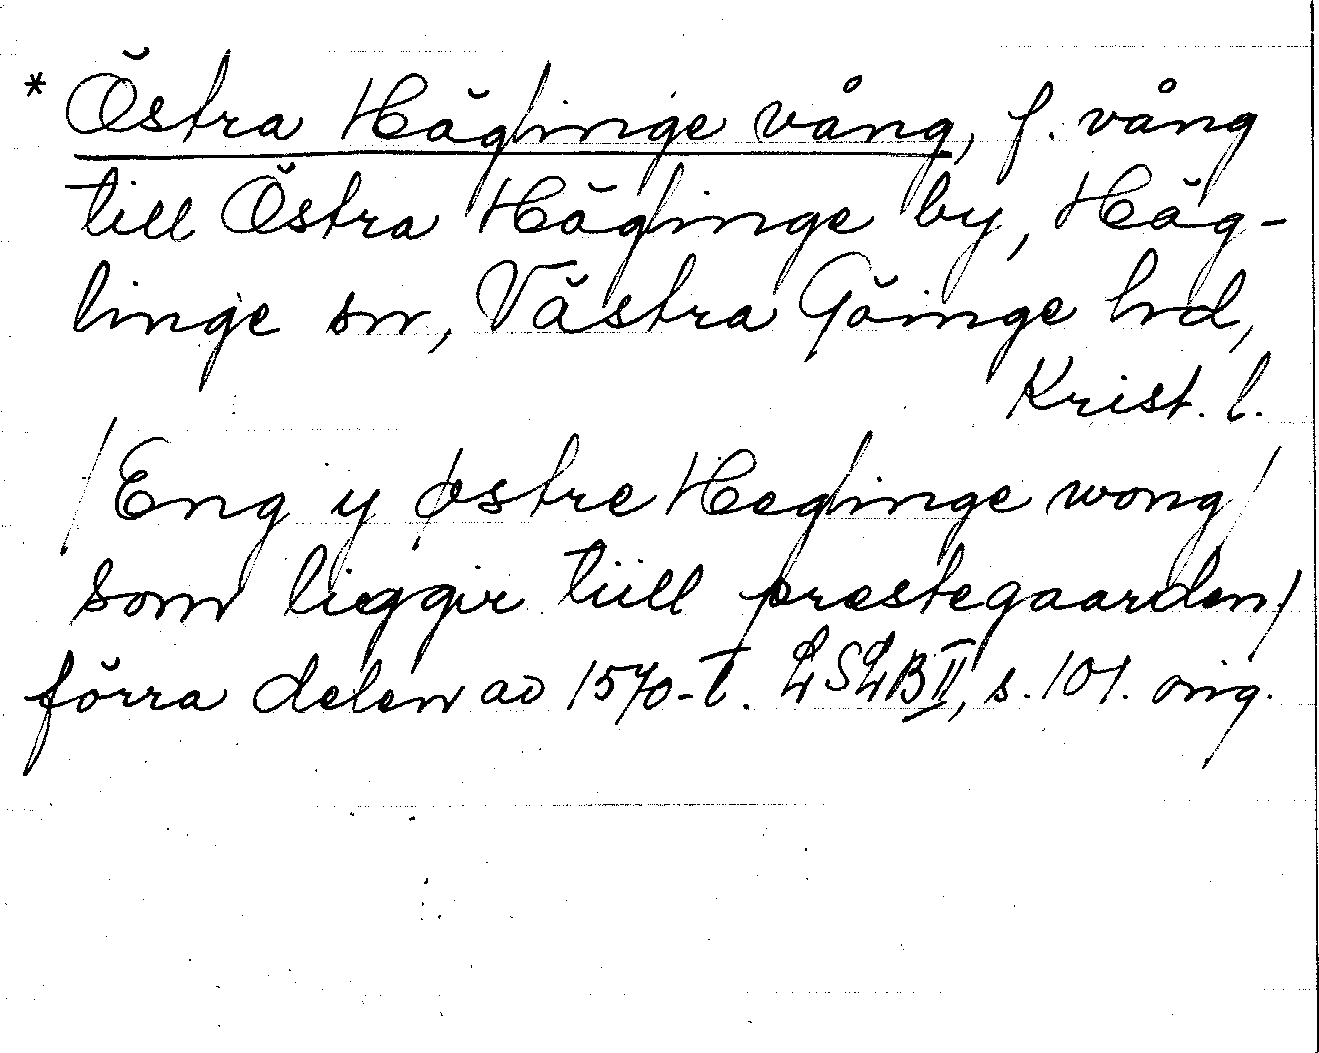 * Östra Häglinge vång, f. vång
till Östra Häglinge by, Häg-
linge sn, Västra Göinge hd,
Krist. l.
/Eng y østre Heglinge wong/
som liegger tiill præstegaarden/
förra delen av 1570-t. LSLB II, s. 101. orig.